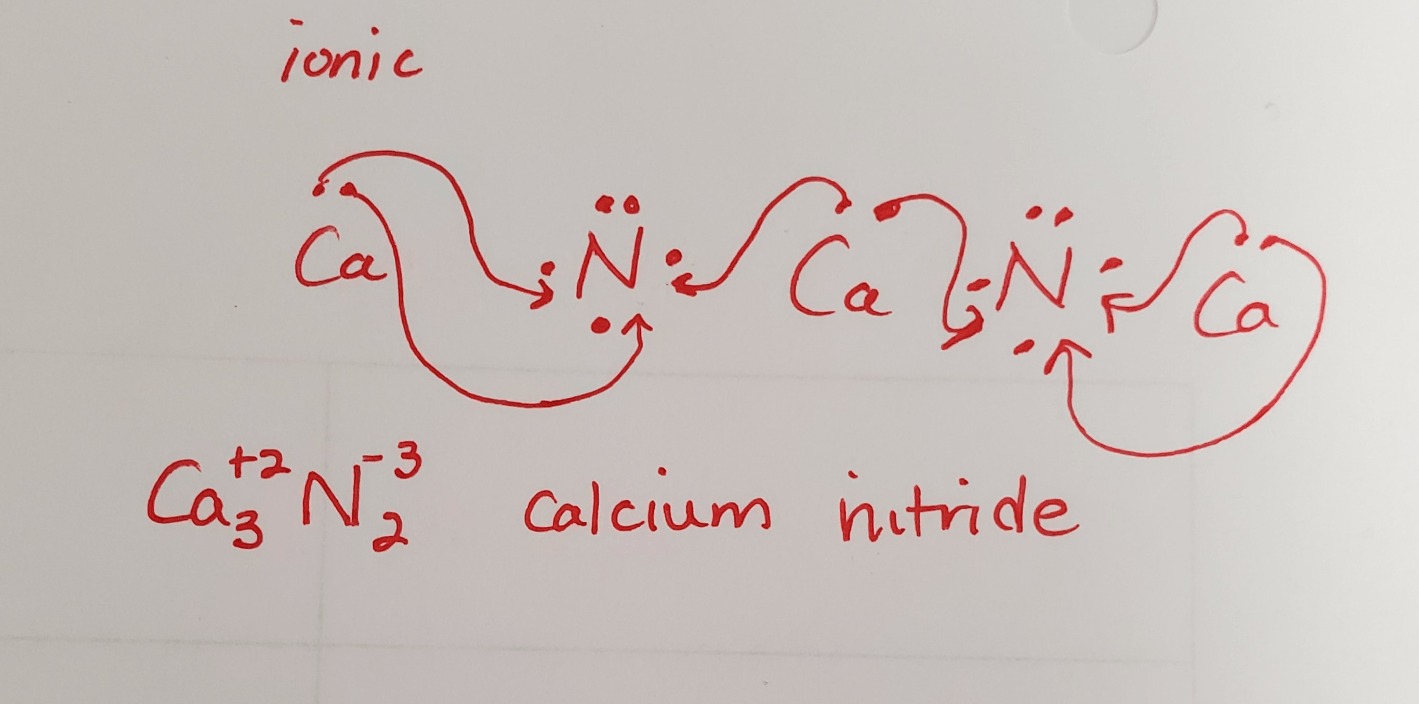 ionic
Ca N Ca N Ca
Ca₃⁺²N₂⁻³ calcium nitride